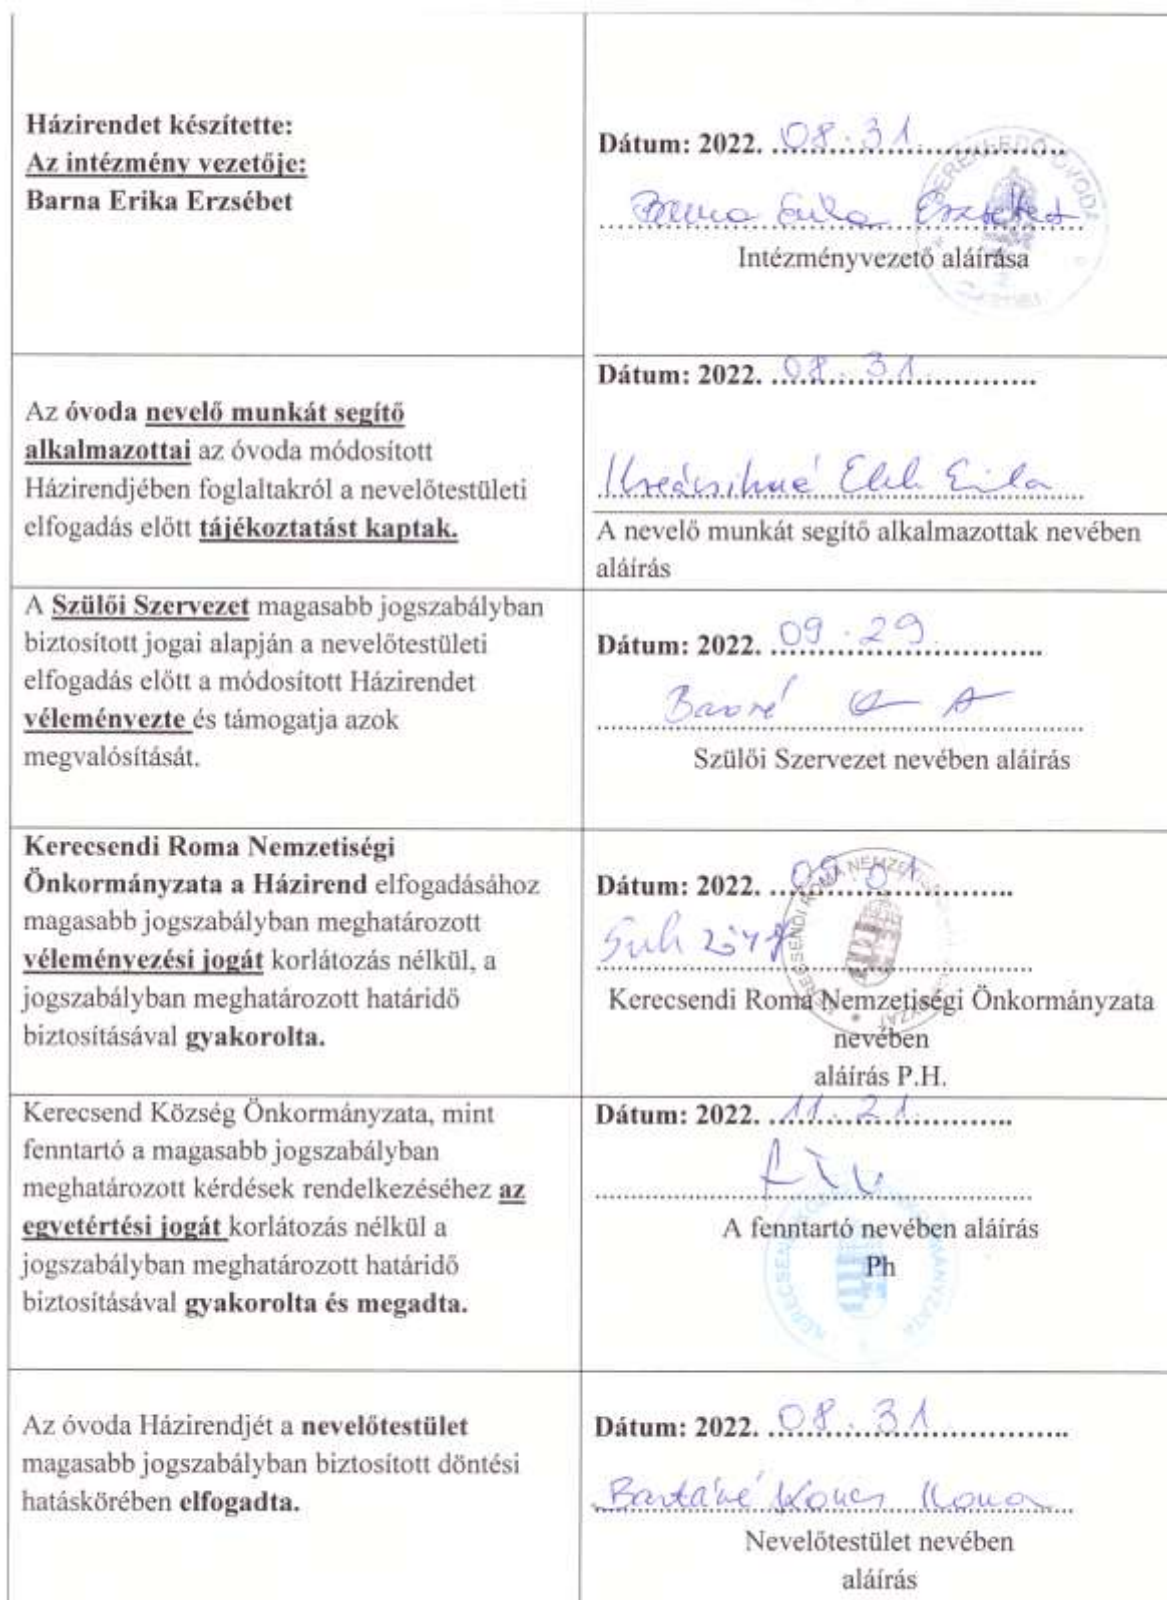 Házirendet készítette:
Az intézmény vezetője:
Barna Erika Erzsébet
Dátum: 2022. 08.31.
Barna Erika Erzsébet
Intézményvezető aláírása
Az óvoda nevelő munkát segítő
alkalmazottai az óvoda módosított
Házirendjében foglaltakról a nevelőtestületi
elfogadás előtt tájékoztatást kaptak.
Dátum: 2022. 08.31.
A nevelő munkát segítő alkalmazottak nevében
aláírás
A Szülői Szervezet magasabb jogszabályban
biztosított jogai alapján a nevelőtestületi
elfogadás előtt a módosított Házirendet
véleményezte és támogatja azok
megvalósítását.
Dátum: 2022. 09.29.
Szülői Szervezet nevében aláírás
Kerecsendi Roma Nemzetiségi
Önkormányzata a Házirend elfogadásához
magasabb jogszabályban meghatározott
véleményezési jogát korlátozás nélkül, a
jogszabályban meghatározott határidő
biztosításával gyakorolta.
Dátum: 2022. 09.01.
KERECSENDI ROMA
Kerecsendi Roma Nemzetiségi Önkormányzata
nevében
aláírás P.H.
Kerecsend Község Önkormányzata, mint
fenntartó a magasabb jogszabályban
meghatározott kérdések rendelkezéséhez az
egyetértési jogát korlátozás nélkül a
jogszabályban meghatározott határidő
biztosításával gyakorolta és megadta.
Dátum: 2022. 11.21.
A fenntartó nevében aláírás
Ph
Az óvoda Házirendjét a nevelőtestület
magasabb jogszabályban biztosított döntési
hatáskörében elfogadta.
Dátum: 2022. 08.31.
Bartáné Koncz Ilona
Nevelőtestület nevében
aláírás